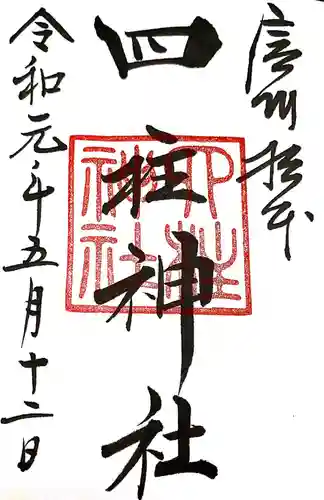 信州松本
四柱神社
四柱神社
令和元年五月十二日